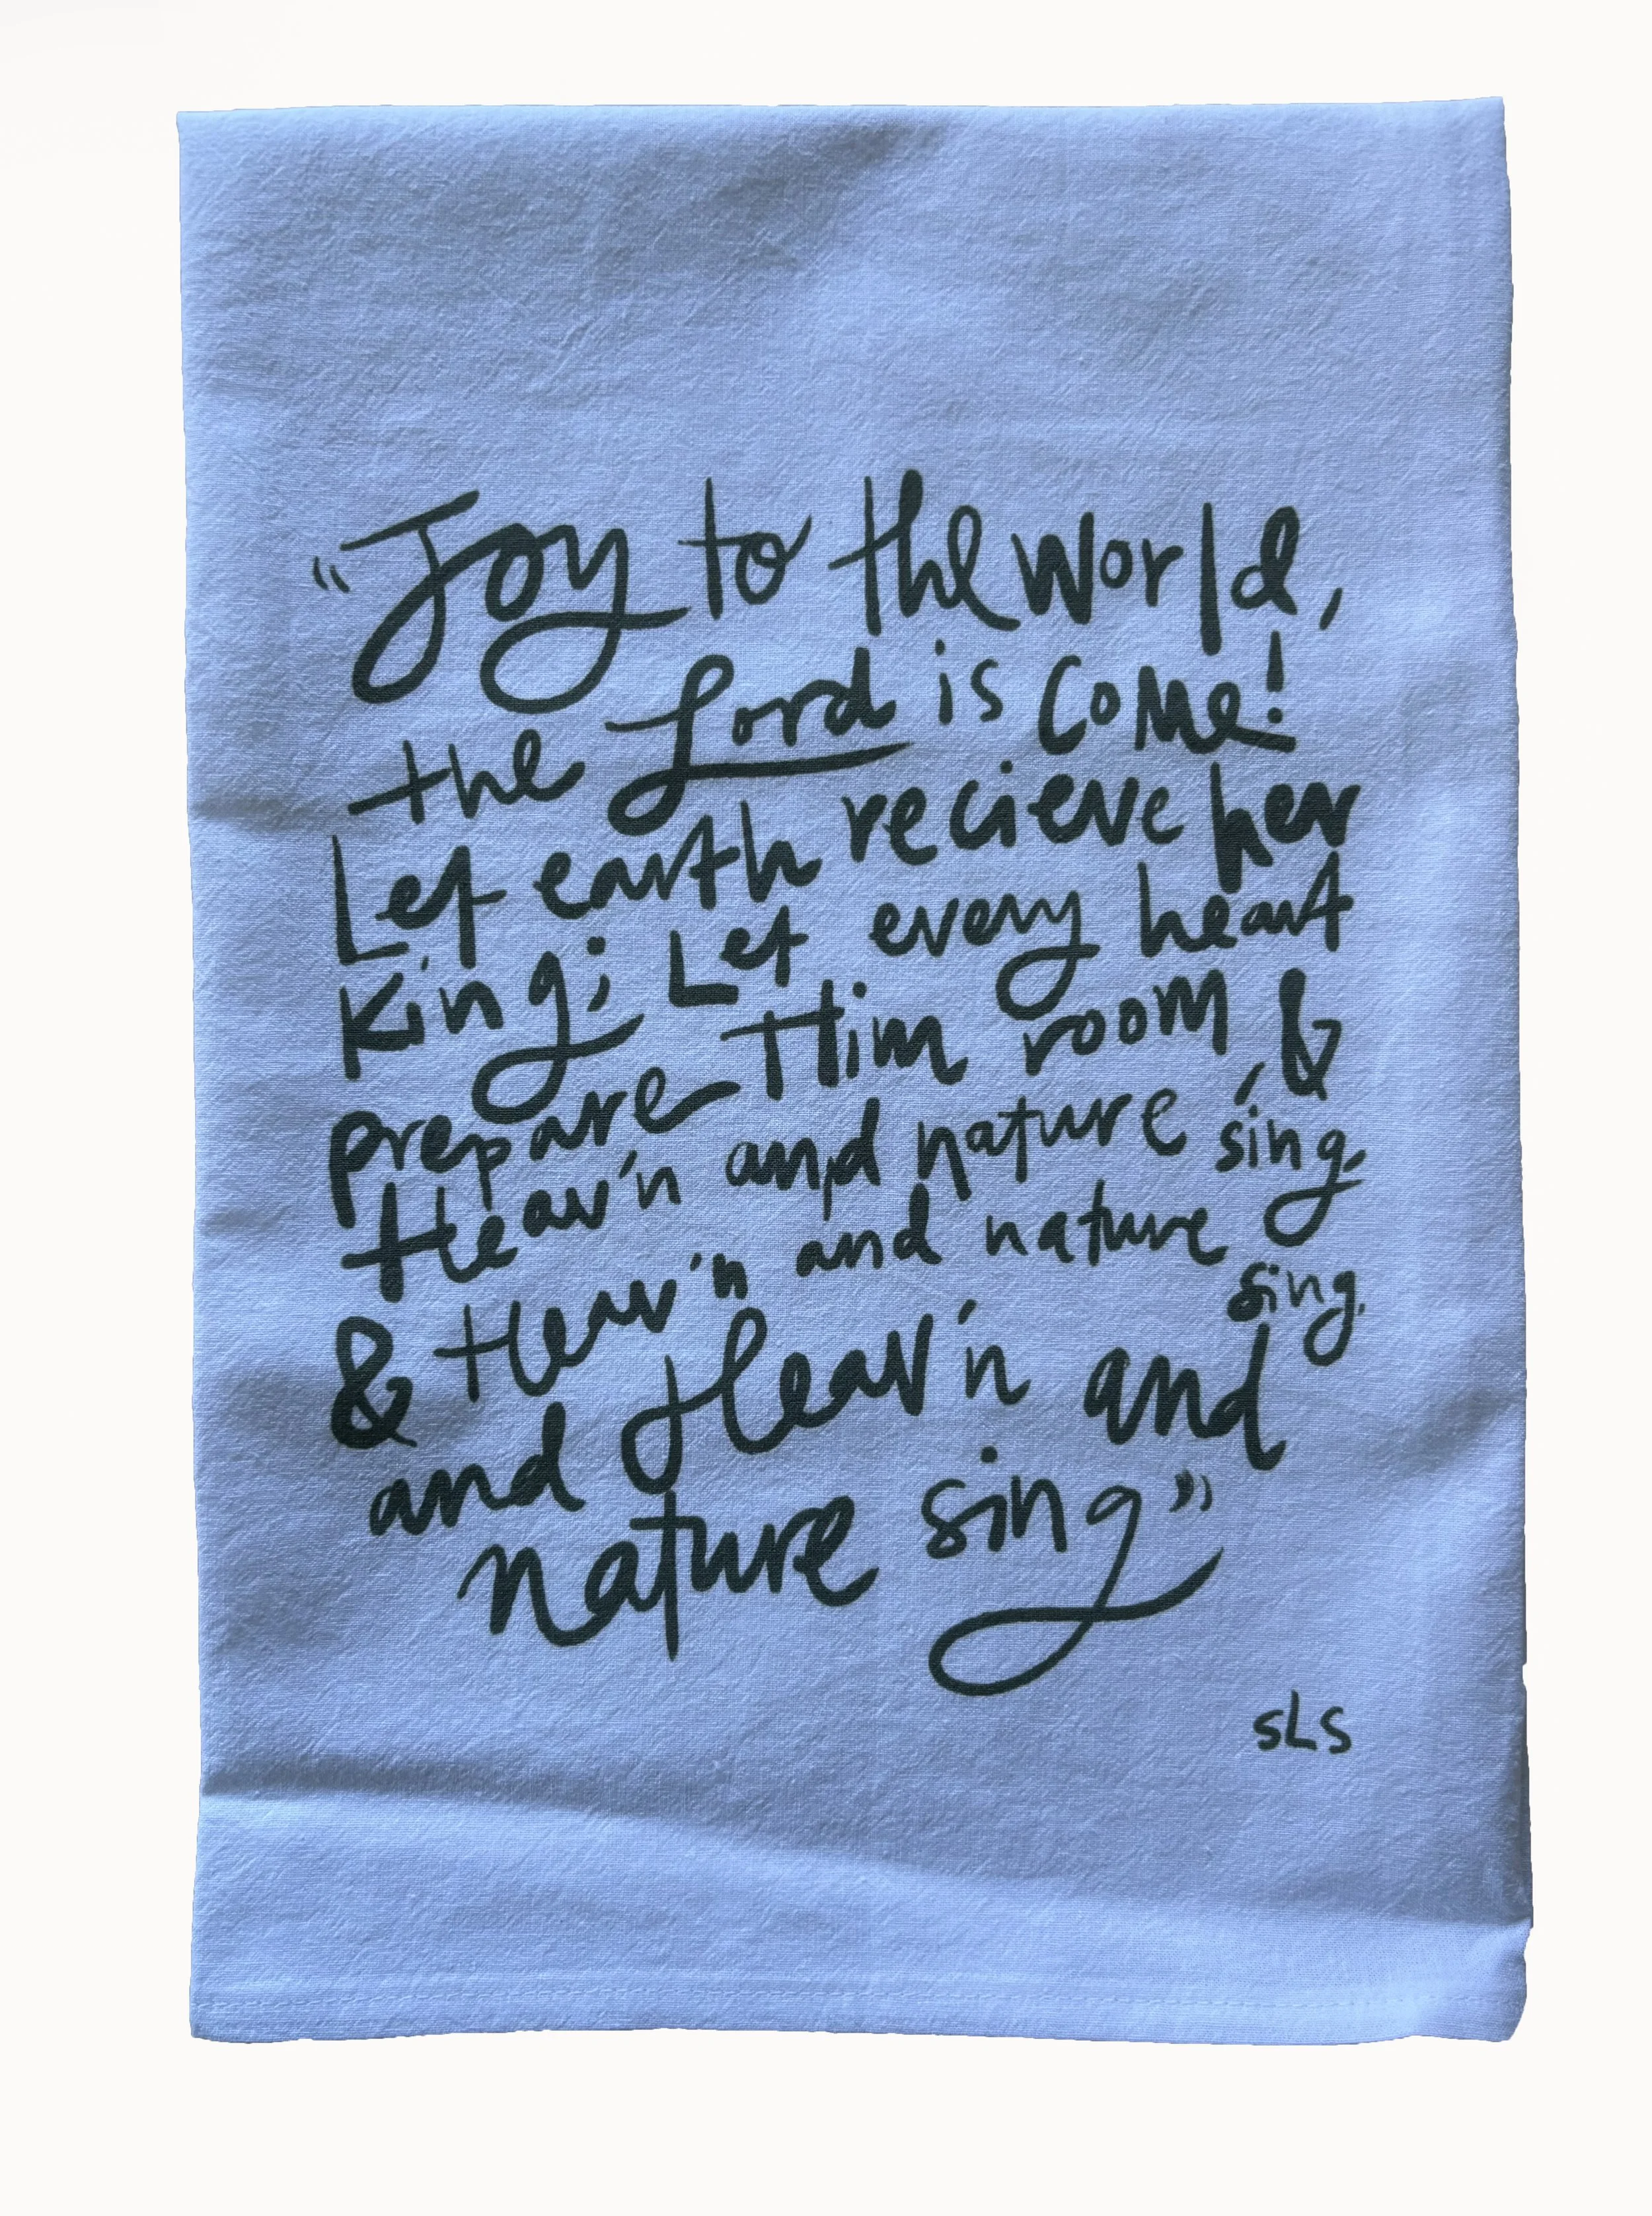 “Joy to the World,
the Lord is Come!
Let earth recieve her
King; Let every heart
prepare Him room, &
Heav'n and nature sing,
& Heav'n and nature sing,
and Heav'n and
nature sing”
SLS